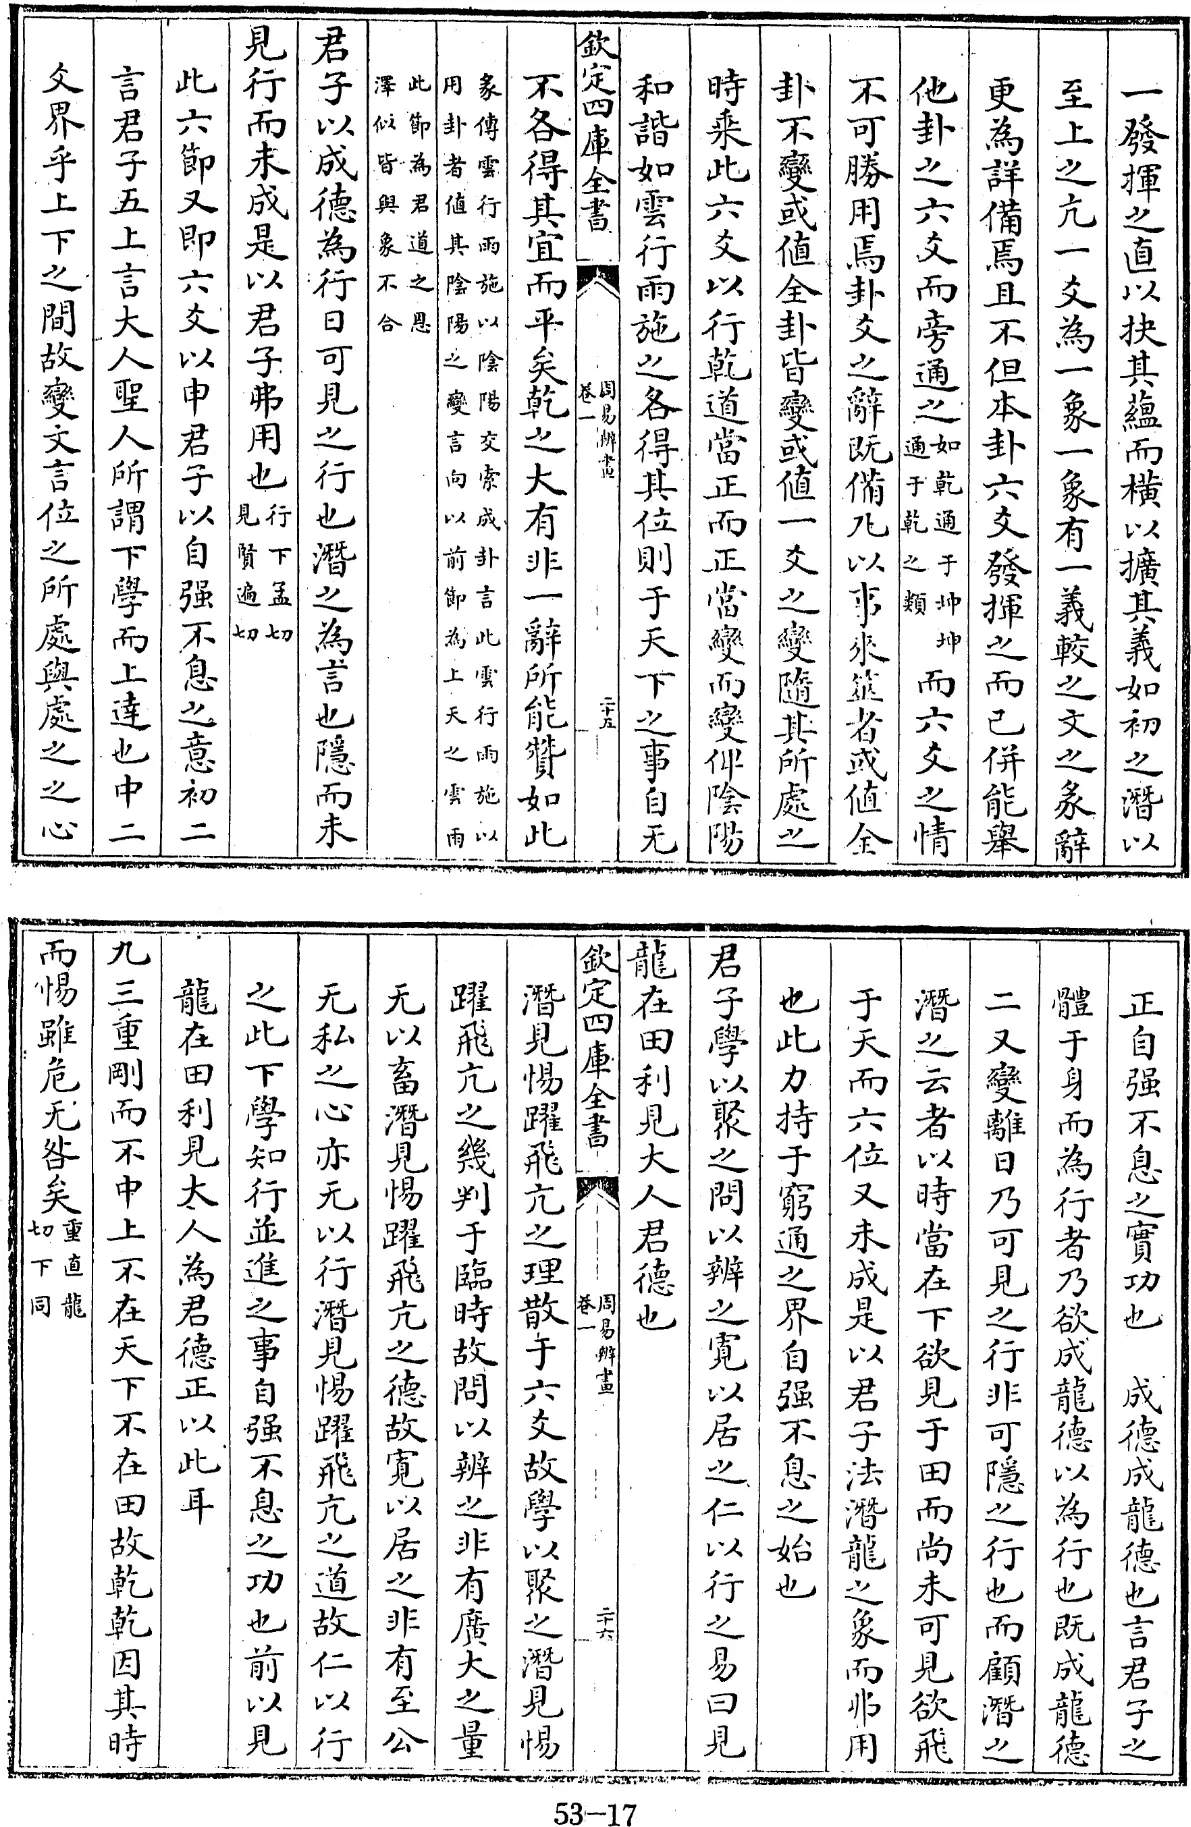 一發揮之直以抉其蘊而橫以擴其義如初之潛以
至上之亢一爻為一象一象有一義較之文之彖辭
更為詳備焉且不但本卦六爻發揮之而已併能舉
他卦之六爻而旁通之如乾通于坤坤通于乾之類而六爻之情
不可勝用焉卦爻之辭既備凡以事來筮者或值全
卦不變或值全卦皆變或值一爻之變隨其所處之
時乘此六爻以行乾道當正而正當變而變俾陰陽
和諧如雲行雨施之各得其位則于天下之事自无
欽定四庫全書 周易辨畫 卷一 二十五
不各得其宜而平矣乾之大有非一辭所能贊如此
彖傳雲行雨施以陰陽交索成卦言此雲行雨施以
用卦者值其陰陽之變言向以前節為上天之雲雨
此節為君道之恩
澤似皆與象不合
君子以成德為行日可見之行也潛之為言也隱而未
見行而未成是以君子弗用也行下孟切見賢遍切
此六節又即六爻以申君子以自强不息之意初二
言君子五上言大人聖人所謂下學而上達也中二
爻界乎上下之間故變文言位之所處與處之之心
正自强不息之實功也 成德成龍德也言君子之
體于身而為行者乃欲成龍德以為行也既成龍德
二又變離日乃可見之行非可隱之行也而顧潛之
潛之云者以時當在下欲見于田而尚未可見欲飛
于天而六位又未成是以君子法潛龍之象而弗用
也此力持于窮通之界自强不息之始也
君子學以聚之問以辨之寛以居之仁以行之易曰見
龍在田利見大人君德也
欽定四庫全書 周易辨畫 卷一 二十六
潛見惕躍飛亢之理散于六爻故學以聚之潛見惕
躍飛亢之幾判于臨時故問以辨之非有廣大之量
无以畜潛見惕躍飛亢之德故寛以居之非有至公
无私之心亦无以行潛見惕躍飛亢之道故仁以行
之此下學知行並進之事自强不息之功也前以見
龍在田利見大人為君德正以此耳
九三重剛而不中上不在天下不在田故乾乾因其時
而惕雖危无咎矣重直龍切下同
53-17